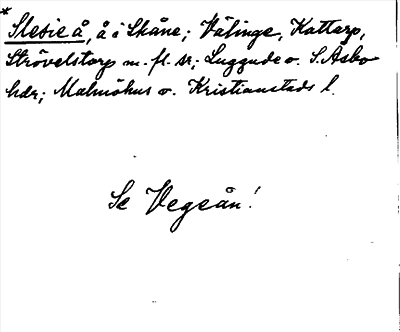 * Slesie å, å i Skåne; Välinge, Kattarp,
Strövelstorp m. fl. sr; Luggude o. S. Åsbo
hdr; Malmöhus o. Kristianstads l.
Se Vegeån!